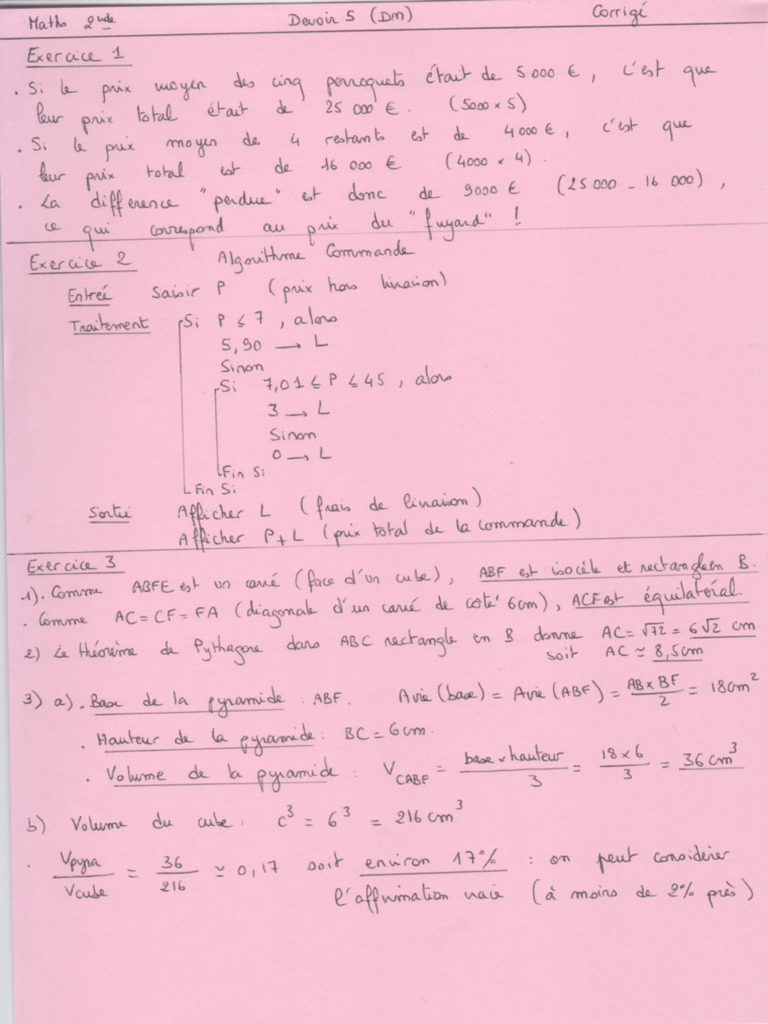 Maths 2nde Devoir 5 (DM) Corrigé
Exercice 1
. Si le prix moyen des cinq perroquets était de 5000 €, c'est que
leur prix total était de 25 000 €. (5000 × 5)
. Si le prix moyen de 4 restants est de 4000 €, c'est que
leur prix total est de 16 000 € (4000 × 4).
. La différence "perdue" est donc de 9000 € (25 000 - 16 000),
ce qui correspond au prix du "fuyard" !
Exercice 2 Algorithme Commande
Entrée Saisir P (prix hors livraison)
Traitement Si P ≤ 7, alors
5,90 → L
Sinon
Si 7,01 ≤ P ≤ 45, alors
3 → L
Sinon
0 → L
Fin Si
Fin Si
Sortie Afficher L (frais de livraison)
Afficher P+L (prix total de la commande)
Exercice 3
1). Comme ABFE est un carré (face d'un cube), ABF est isocèle et rectangle en B.
. Comme AC = CF = FA (diagonale d'un carré de coté 6cm), ACF est équilatéral.
2) Le théorème de Pythagore dans ABC rectangle en B donne AC = √72 = 6√2 cm
soit AC ≃ 8,5cm
3) a). Base de la pyramide : ABF. Aire (base) = Aire (ABF) = AB × BF / 2 = 18cm²
. Hauteur de la pyramide : BC = 6cm.
. Volume de la pyramide : V_CABF = base × hauteur / 3 = 18 × 6 / 3 = 36 cm³
b) Volume du cube : c³ = 6³ = 216 cm³
. Vpyra / Vcube = 36 / 216 ≃ 0,17 soit environ 17% : on peut considérer
l'affirmation vraie (à moins de 2% près)